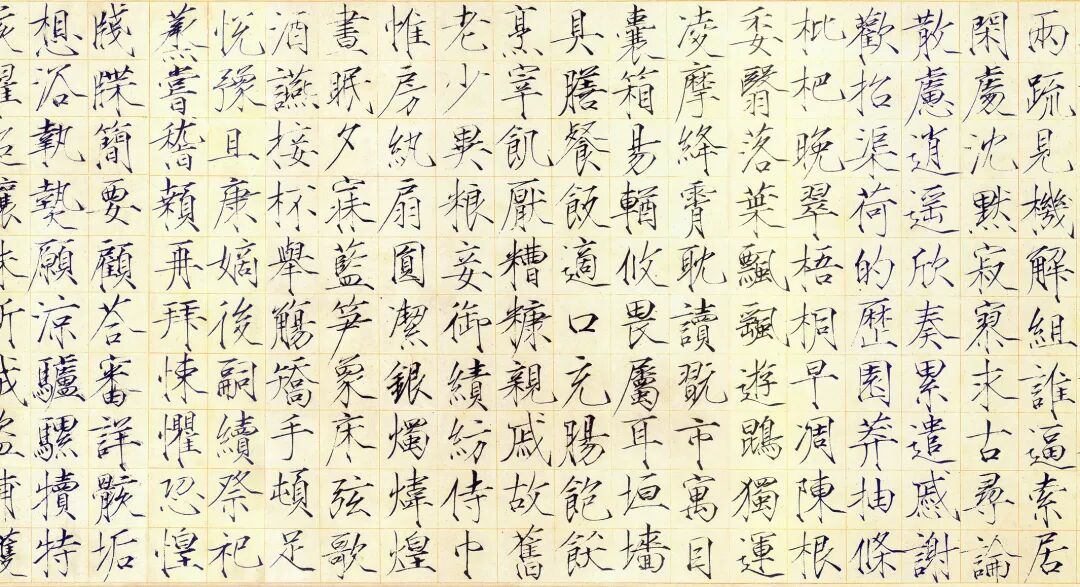 兩疏見機解組誰逼索居
閑處沈默寂寥求古尋論
散慮逍遙欣奏累遣慼謝
歡招渠荷的歷園莽抽條
枇杷晚翠梧桐早凋陳根
委翳落葉飄颻遊鵾獨運
凌摩絳霄耽讀翫市寓目
囊箱易輶攸畏屬耳垣墻
具膳餐飯適口充腸飽飫
烹宰飢厭糟糠親戚故舊
老少異粮妾御績紡侍巾
惟房紈扇圓潔銀燭煒煌
晝眠夕寐藍笋象床弦歌
酒讌接杯舉觴矯手頓足
悅豫且康嫡後嗣續祭祀
蒸嘗稽顙再拜悚懼恐惶
牋牒簡要顧荅審詳骸垢
想浴執熱願涼驢騾犢特